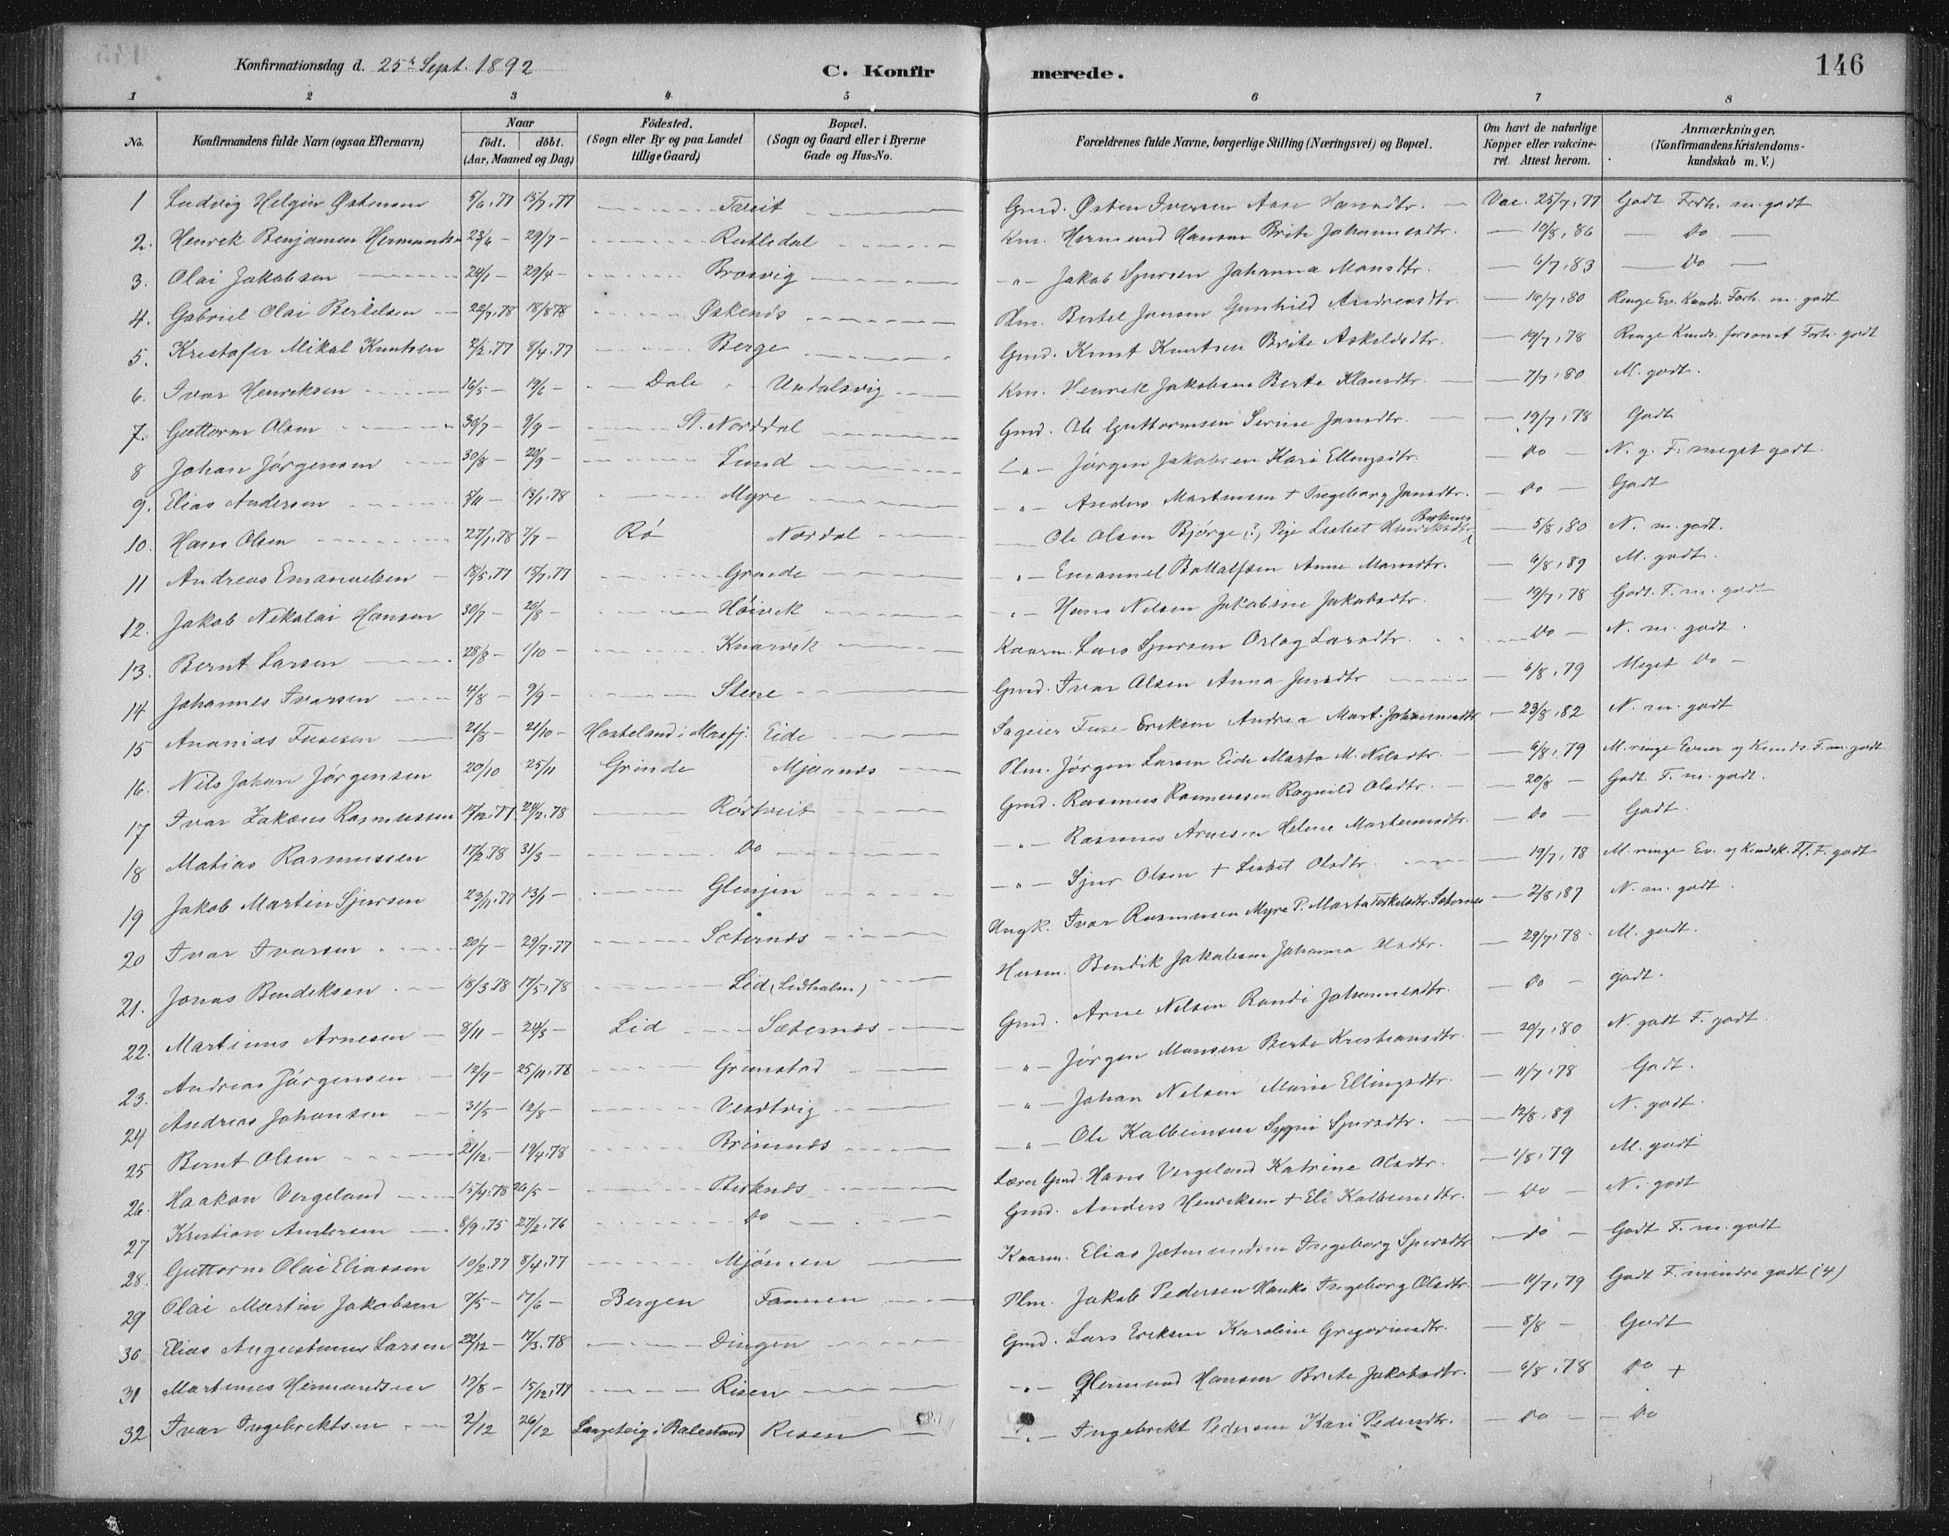 Konfirmationsdag d. 25de Sept. 1892 C. Konfirmerede. 146
1 2 3 4 5 6 7 8
No. Konfirmandens fulde Navn (ogsaa Efternavn) Naar födt. döbt. (Aar, Maaned og Dag) Födested. (Sogn eller By og paa Landet tillige Gaard) Bopæl. (Sogn og Gaard eller i Byerne Gade og Hus-No. Forældrenes fulde Navne, borgerlige Stilling (Næringsvei) og Bopæl. Om havt de naturlige Kopper eller vakcineret. Attest herom. Anmærkninger. (Konfirmandens Kristendomskundskab m. V.)
1 Ludvig Helgin Østensen 5/6.77 15/7.77 Tveit Gmd. Østen Iversen Hansdtr. Vac. 25/7.77 Godt Forh. m. godt
2. Henrik Benjamin 23/6 – 29/7 – Rutledal Km. Hermund Hansen Brite Johannesdtr. – 10/8.86 – Do –
3. Olai Jakobsen 24/1 – 29/4 – Brosvig – " – Jakob Sjursen Johanna Monsdtr. – 6/7.83 – Do –
4. Gabriel Olai Bertelsen 22/7.78 18/8 78 Plm. Bertel Jansen Gunhild Andreasdtr. – 16/7.80 Ringe Ev. Kunds. Forh. m. godt
5. Kristofer Mikal Knutsen 2/2.77 8/4.77 Berge Gmd. Knut Knutsen Brite Askelsdtr. – 19/7.78 Ringe Kunds. forsømt Forh. godt
6. Ivar Henriksen 16/5 – 13/6 – Dale Undalsvig Km. Henrik Jakobsen Berte Klausdtr. – 7/7.80 M. godt.
7. Guttorm Olsen 30/7 – 9/9 – St. Norddal Gmd. Ole Guttormsen Serine Jansdtr. – 19/7.78 Godt
8 Johan Jørgensen 30/8 – 29/9 – Lund – " – Jørgen Jakobsen Kari Ellingsdtr. – Do – N. g. F. meget godt.
9. Elias Andersen 5/11 – 13/1.78 Myre – " – Anders Martinsen + Ingeborg Jansdtr. – Do – Godt
10. Hans Olsen 27/1.78 7/7 – Rö Nordal Ole Olsen Bjørge (?), Pige Lisbet – 5/8.80 N. m. godt.
11 Andreas Emanuelsen 18/5.77 15/7.77 Grinde – " – Emanuel Anne Monsdtr. – 6/8.89 M. godt.
12. Jakob Nikolai Hansen 30/7 – 26/8 – Høivik – " – Hans Nilsen Jakobine Jakobsdtr. – 19/7.78 Godt. F. m. godt
13. Bernt Larsen 28/8 – 1/10 – Knarvik Kaarm. Lars Sjursen Orlog Larsdtr. Do – N. m. godt.
14 Johannes Ivarsen 4/8 – 9/9 – Stene Gmd. Ivar Olsen Anna Jansdtr. – 6/8.79 Meget Do –
15 Ananias Tusesen 21/8 – 21/10 – Eide Sageier Eriksen Andrea Mart. Johannesdtr. – 23/8.82 N. m. godt
16. Nils Johan Jørgensen 20/10 25/11 Grinde Mjaanes Plm. Jørgen Larsen Eide Marta M. Nilsdtr. – 6/8.79 M. ringe Evner og Kunds. F. m. godt
17 Ivar Zakæus Rasmussen 17/12.77 24/2.78 Rörtveit Gmd. Rasmus Rasmussen Ragnild Olsdtr. – 20/8 – Godt. F. m. godt.
18 Matias Rasmussen 17/2.78 31/3 – Do – " – Rasmus Arnesen Helene Martinusdtr. – Do – Godt.
19 Jakob Martin Sjursen 23/11.77 13/1 – Glenjen – " – Sjur Olsen + Lisbet Olsdtr. – 19/7.78 M. ringe Ev. og Kundsk. Fl. F. godt
20 Ivar Ivarsen 20/7 – 29/7.77 Sæternes Ungk. Ivar Rasmussen Myre P. Marta Sæternes – 2/8.87 N. m. godt.
21. Jonas Bendiksen 18/3.78 17/5.78 Lid (Lidholm) Husm. Bendik Jakobsen Johanna Olsdtr. – 29/7.78. M. godt.
22. Martinus Arnesen 8/11 – 24/3 – Lid Sæternes Gmd. Arne Nilsen Randi Johannesdtr. – Do – godt.
23. Andreas Jørgensen 12/9 – 25/11.78 Grimstad – " – Jørgen Monsen Berte Kristiansdtr. – 20/7.80 N. godt F. godt.
24 Andreas Johansen 31/5 – 12/8 – – " – Johan Nilsen Marie Ellingsdtr. – 11/7.78 Godt.
25 Bernt Olsen 21/12. – 19/4.78 Brinnes – " – Ole Kolbeinsen Sygni Sjursdtr. – 12/8.89 N. godt.
26. Haakon Vergeland 15/4.78 26/5 – Birknes Lærer Gmd. Hans Vergeland Katrine Olsdtr. – 1/8.79 M. godt
27 Kristian Andersen 8/9.75 27/2.76 Do Gmd. Anders Henriksen + Eli Kolbeinsdtr. – Do – N. godt
28. Guttorm Olai Eliassen 10/2.77 8/4.77 Mjömen Kaarm. Elias Ingeborg Sjursdtr. – Do – Godt F. m. godt
29 Olai Martin Jakobsen 7/5 – 17/6 – Bergen Tannen Plm. Jakob Pedersen Ingeborg Olsdtr. – 11/7.79 Godt F. mindre godt (4)
30 Elias Augustinus Larsen 22/12 – 17/3.78 Dingen Gmd. Lars Eriksen Karoline Gregoriusdtr. – 8/8 – Godt
31 Martinus Hermundsen 19/8 – 15/12.77 Risen – " – Hermund Hansen Brite Jakobsdtr. – 6/8.78 Do +
32 Ivar Ingebriktsen 2/12 26/12 Risen – " – Ingebrikt Pedersen Kari Pedersdtr. – Do – – Do